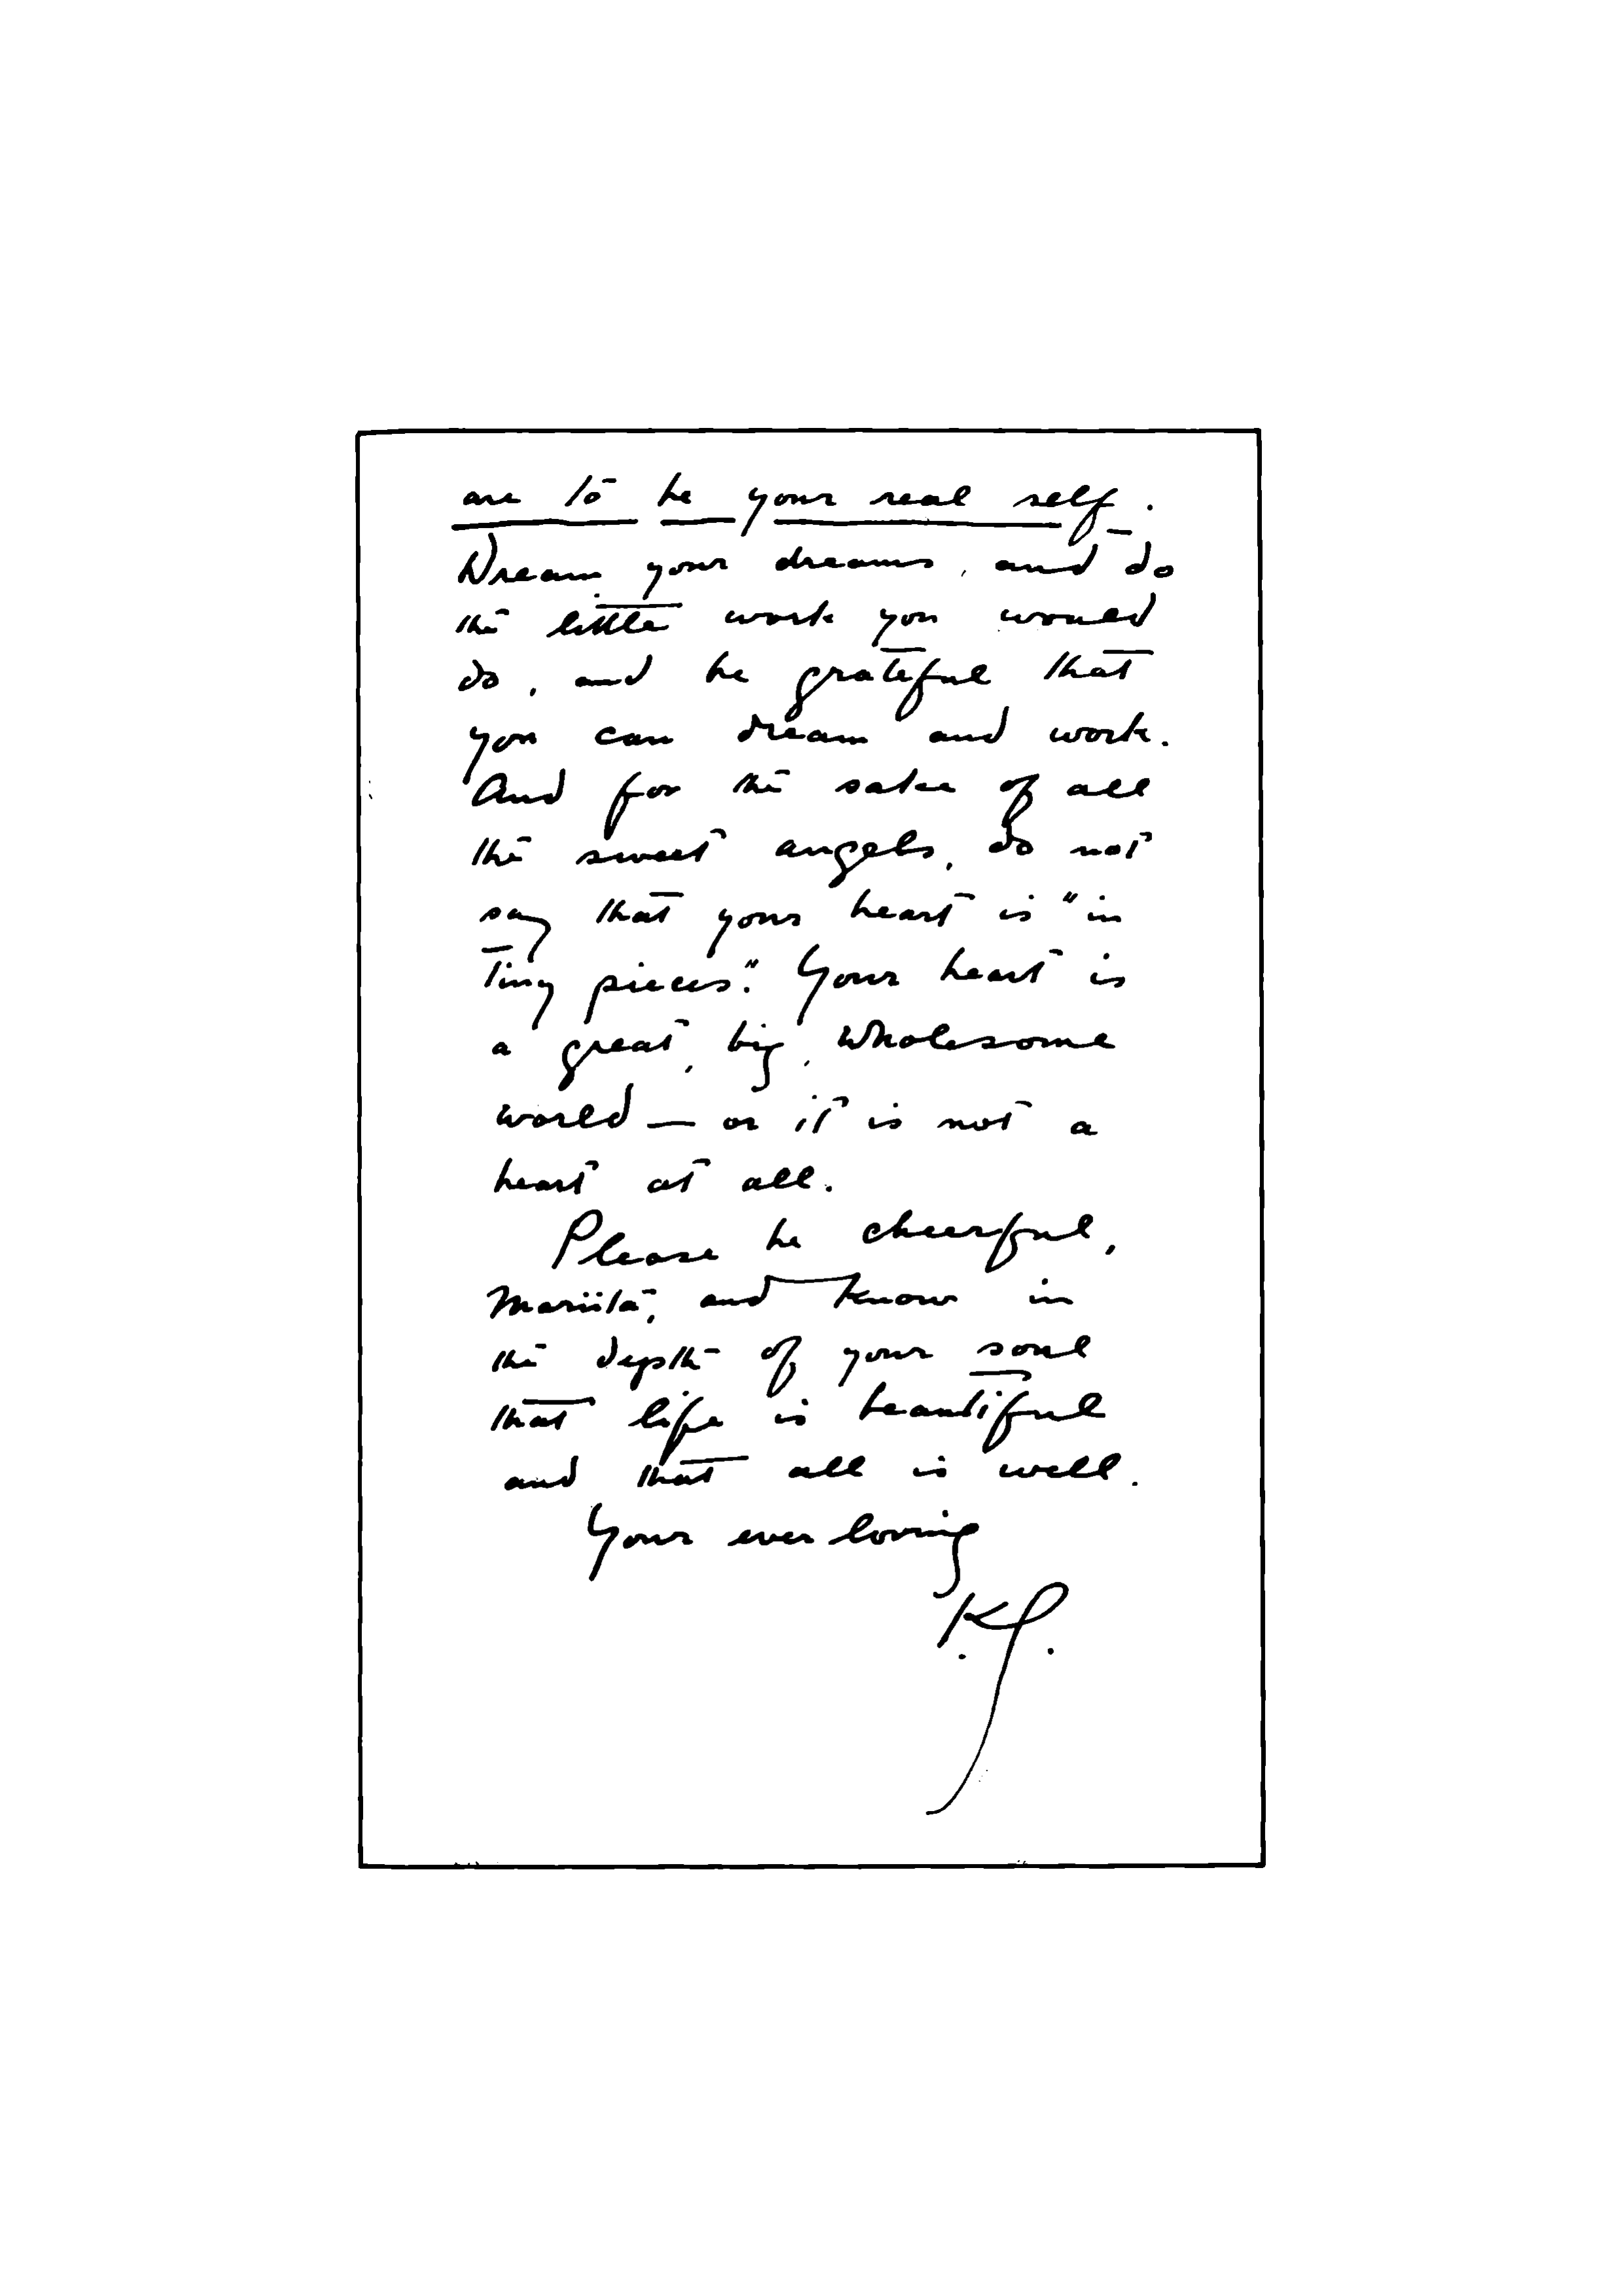 are to be your real self.
Dream your dreams, and do
the little work you would
do, and be grateful that
you can dream and work.
And for the sake of all
the sweet angels, do not
say that your heart is "in
tiny pieces." Your heart is
a great, big, wholesome
world — or it is not a
heart at all.
Please be cheerful,
Mariita, and know in
the depth of your soul
that life is beautiful
and that all is well.
Your ever loving
K.